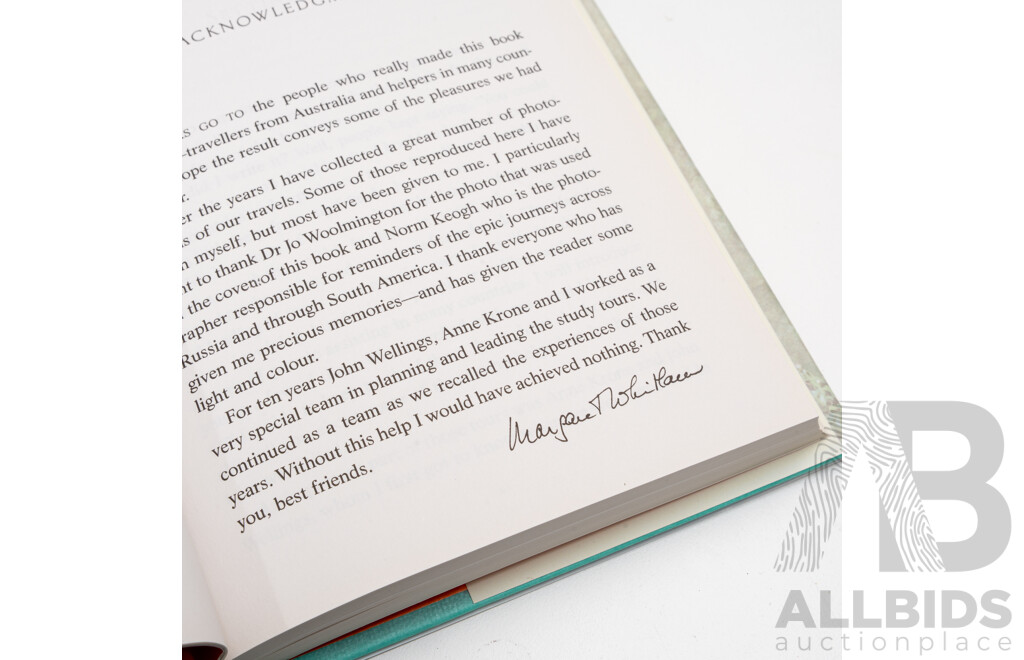 ACKNOWLEDG
GO TO the people who really made this book
-travellers from Australia and helpers in many coun-
ope the result conveys some of the pleasures we had
r.
er the years I have collected a great number of photo-
s of our travels. Some of those reproduced here I have
n myself, but most have been given to me. I particularly
nt to thank Dr Jo Woolmington for the photo that was used
the cover of this book and Norm Keogh who is the photo-
rapher responsible for reminders of the epic journeys across
Russia and through South America. I thank everyone who has
given me precious memories—and has given the reader some
light and colour.
For ten years John Wellings, Anne Krone and I worked as a
very special team in planning and leading the study tours. We
continued as a team as we recalled the experiences of those
years. Without this help I would have achieved nothing. Thank
you, best friends.
Margaret Whitlam
AB
ALLBIDS
auctionplace